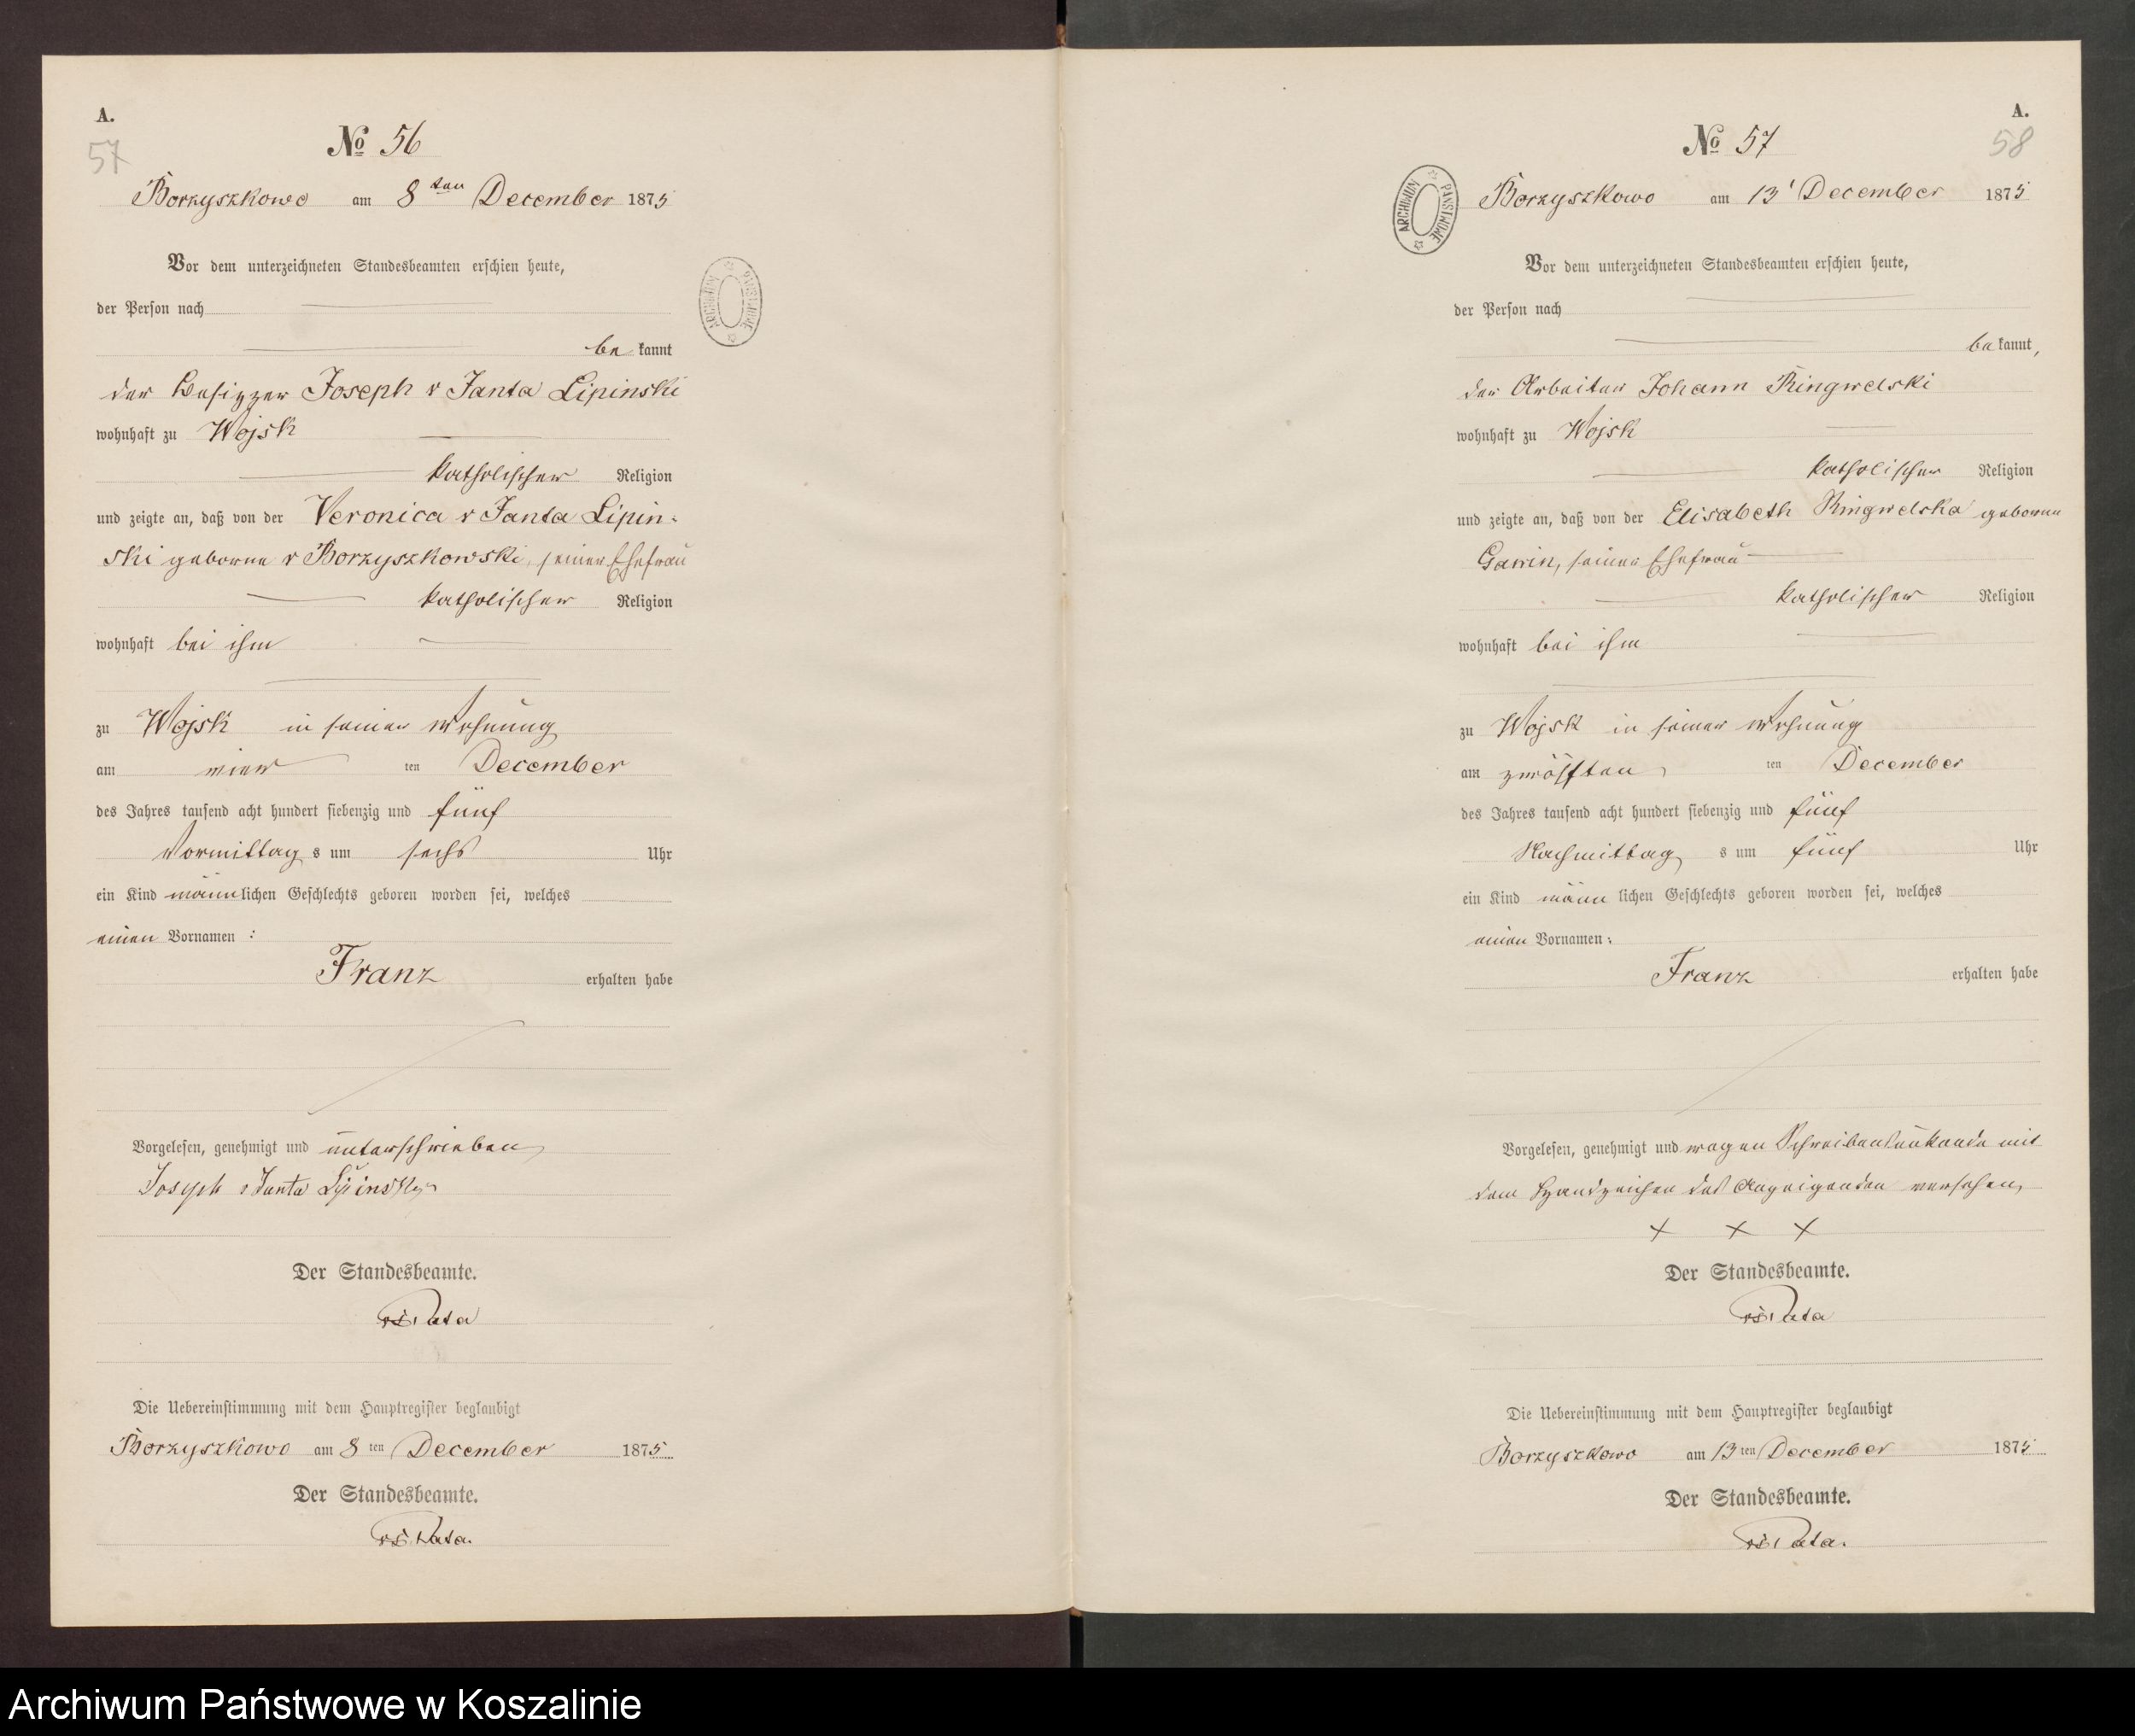 A.
57
No 56
Borzyszkowo am 8ten December 1875
Vor dem unterzeichneten Standesbeamten erschien heute,
der Person nach
be kannt
der Besitzer Joseph v Janta Lipinski
wohnhaft zu Wojsk
katholischer Religion
und zeigte an, daß von der Veronica v Janta Lipin-
ski geborne v Borzyszkowski, seiner Ehefrau
katholischer Religion
wohnhaft bei ihm
zu Wojsk in seiner Wohnung
am vier ten December
des Jahres tausend acht hundert siebenzig und fünf
Vormittag s um sechs Uhr
ein Kind männlichen Geschlechts geboren worden sei, welches
einen Vornamen :
Franz erhalten habe
Vorgelesen, genehmigt und unterschrieben
Joseph v Janta
Der Standesbeamte.
Die Uebereinstimmung mit dem Hauptregister beglaubigt
Borzyszkowo am 8 ten December 1875
Der Standesbeamte.
ARCHIWUM PAŃSTWOWE
A.
58
No 57
Borzyszkowo am 13' December 1875
Vor dem unterzeichneten Standesbeamten erschien heute,
der Person nach
be kannt,
der Arbeiter Johann Ringwelski
wohnhaft zu Wojsk
katholischer Religion
und zeigte an, daß von der Elisabeth Ringwelska geborne
Gawin, seiner Ehefrau
katholischer Religion
wohnhaft bei ihm
zu Wojsk in seiner Wohnung
am zwölften ten December
des Jahres tausend acht hundert siebenzig und fünf
Nachmittag s um fünf Uhr
ein Kind männ lichen Geschlechts geboren worden sei, welches
einen Vornamen:
Franz erhalten habe
Vorgelesen, genehmigt und wegen Schreibensunkunde mit
dem Handzeichen des Anzeigenden versehen,
x x x
Der Standesbeamte.
Die Uebereinstimmung mit dem Hauptregister beglaubigt
Borzyszkowo am 13 ten December 1875
Der Standesbeamte.
ARCHIWUM PAŃSTWOWE
Archiwum Państwowe w Koszalinie